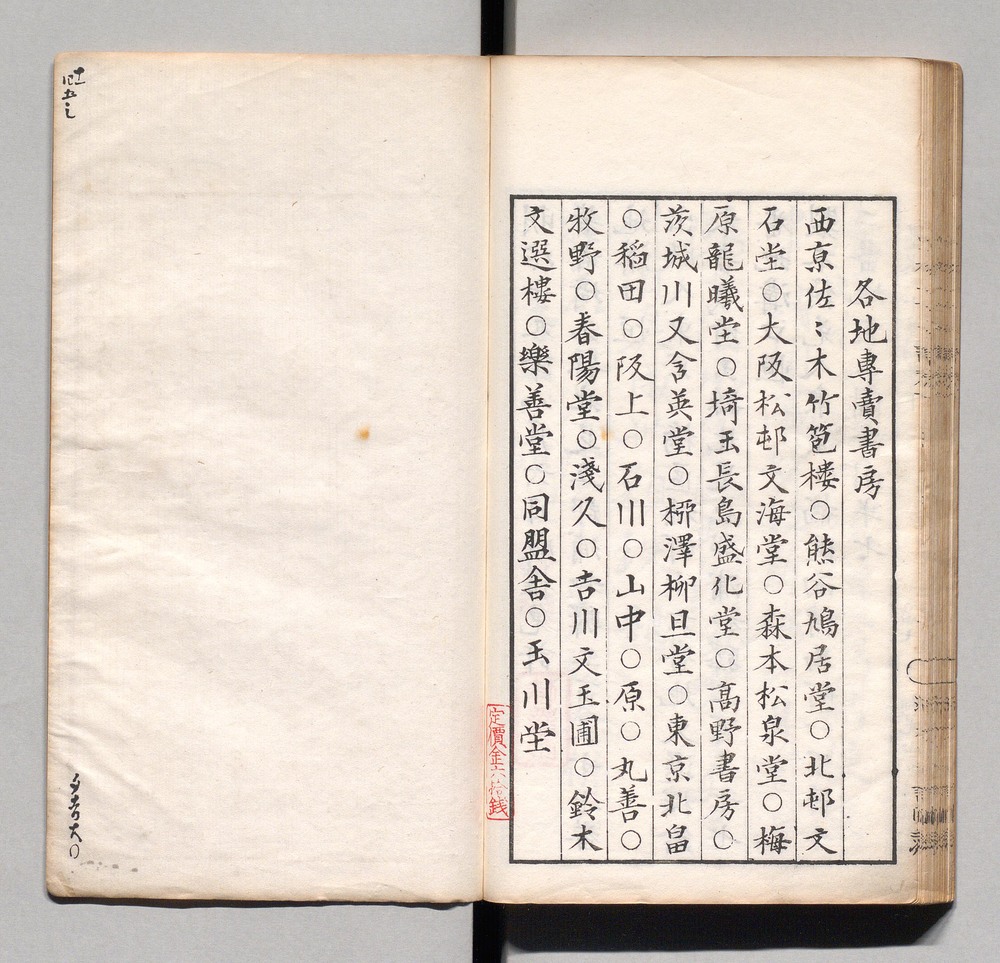 各地專賣書房
西亰佐〻木竹苞樓○熊谷鳩居堂○北邨文
石堂○大阪松邨文海堂○森本松泉堂○梅
原龍曦堂○埼玉長島盛化堂○髙野書房○
茨城川又含英堂○栁澤柳旦堂○東京北畠
○稻田○阪上○石川○山中○原○丸善○
牧野○春陽堂○淺久○吉川文玉圃○鈴木
文選樓○樂善堂○同盟舍○玉川堂
定價金六拾錢